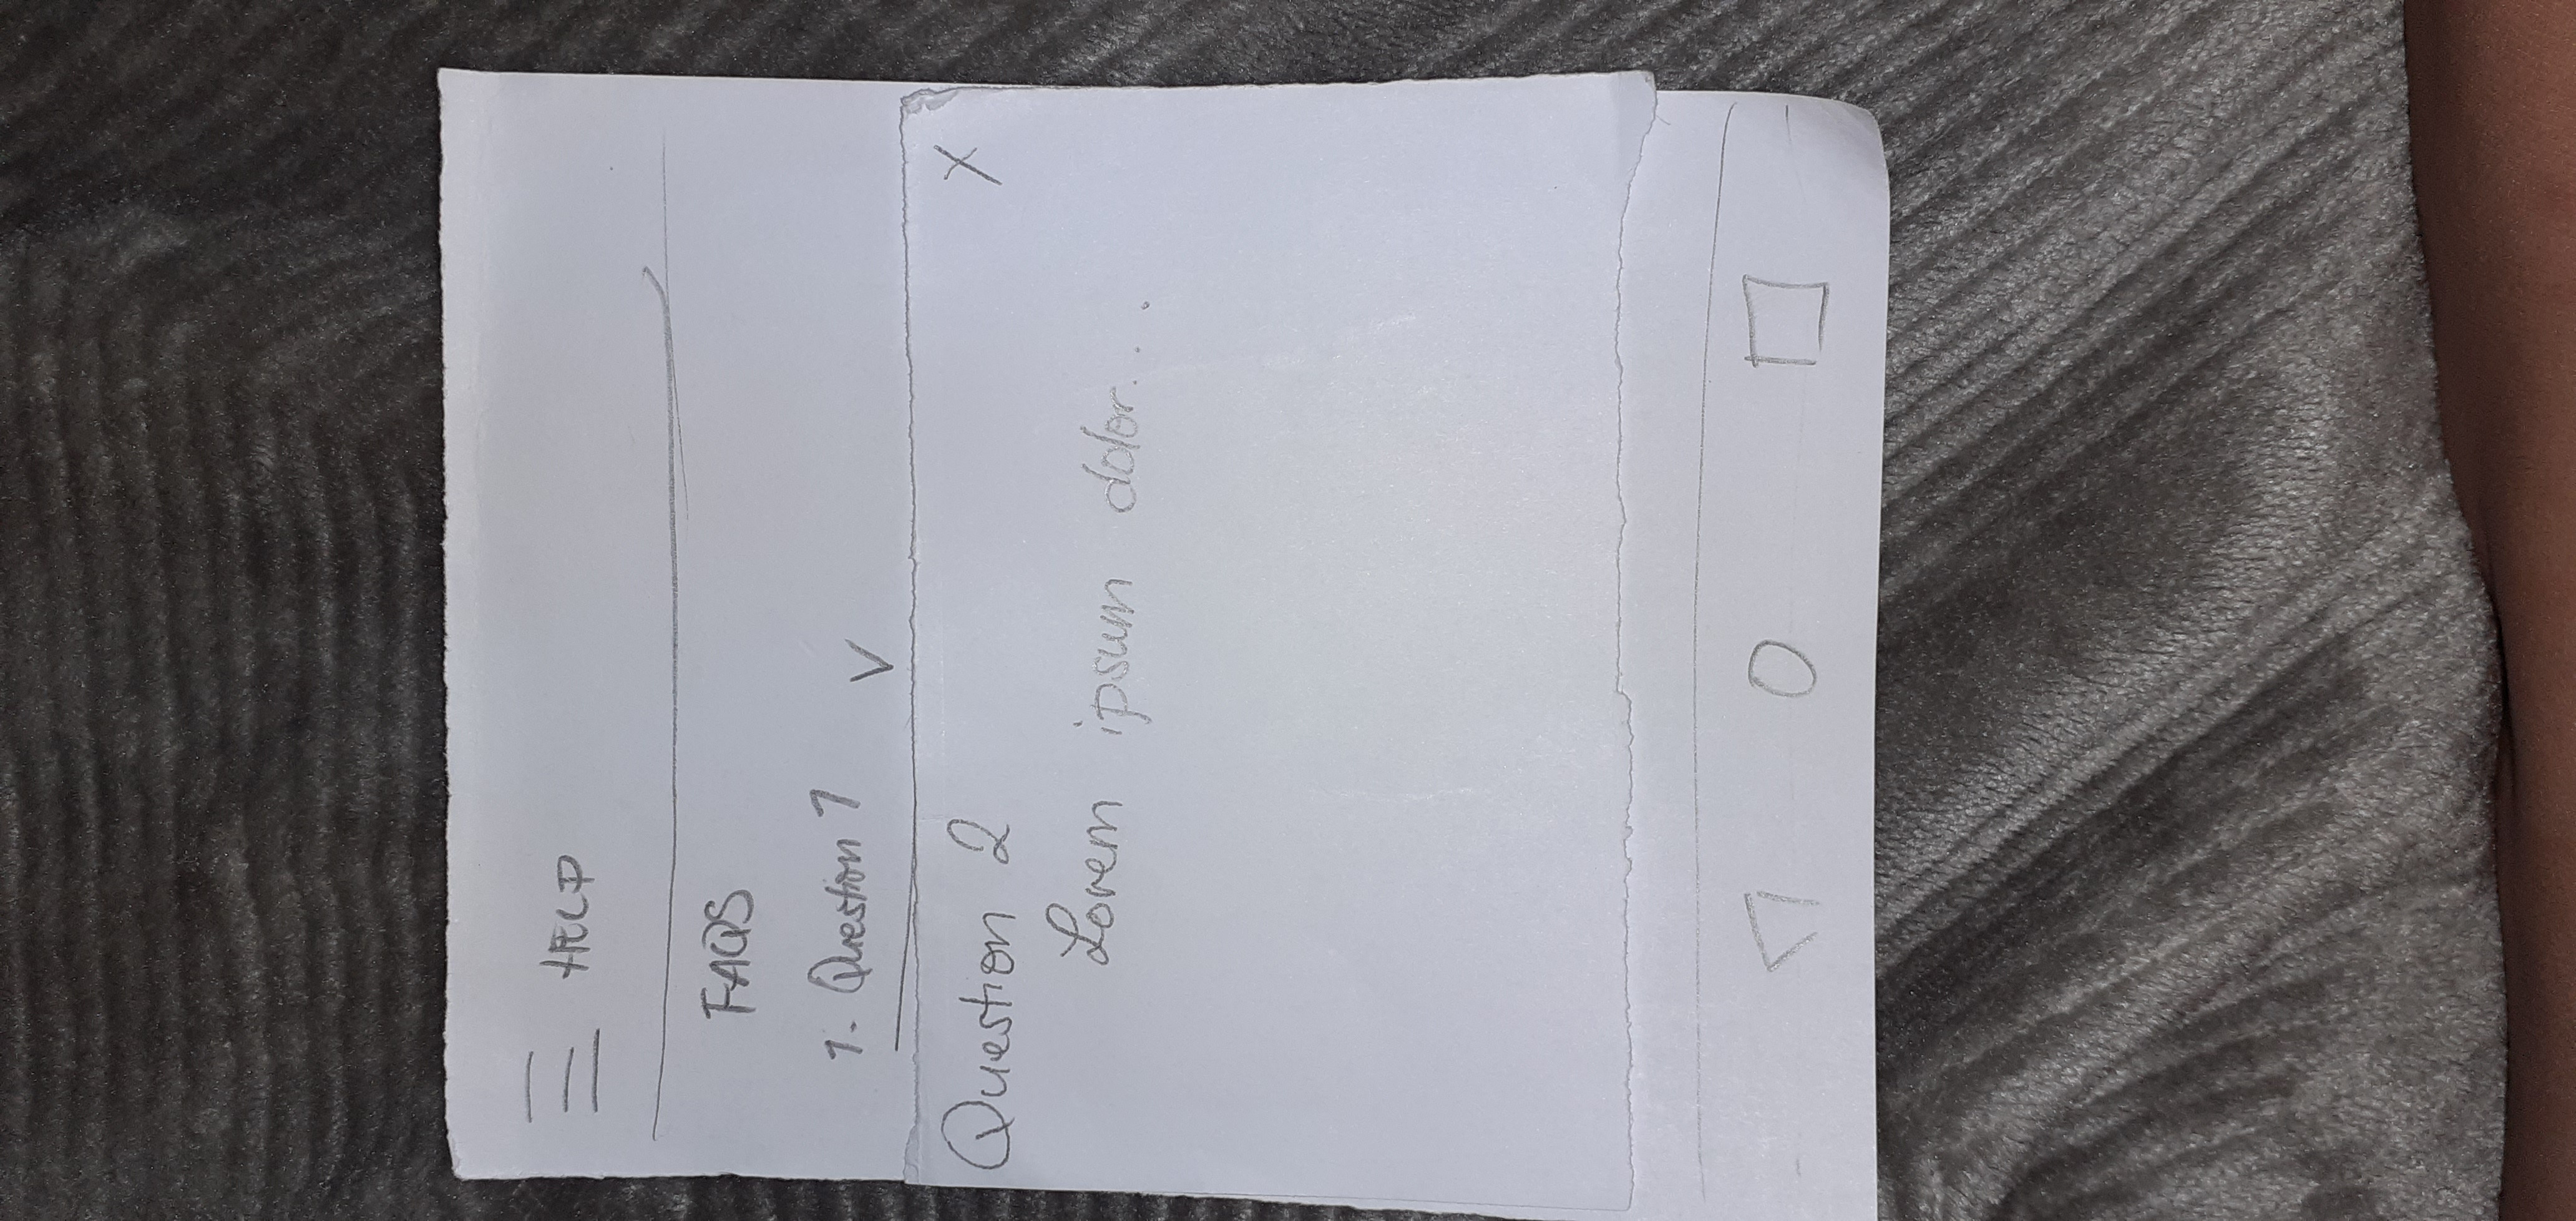 HELP
FAQS
1. Question 1 V
Question 2 X
Lorem ipsum dolor...